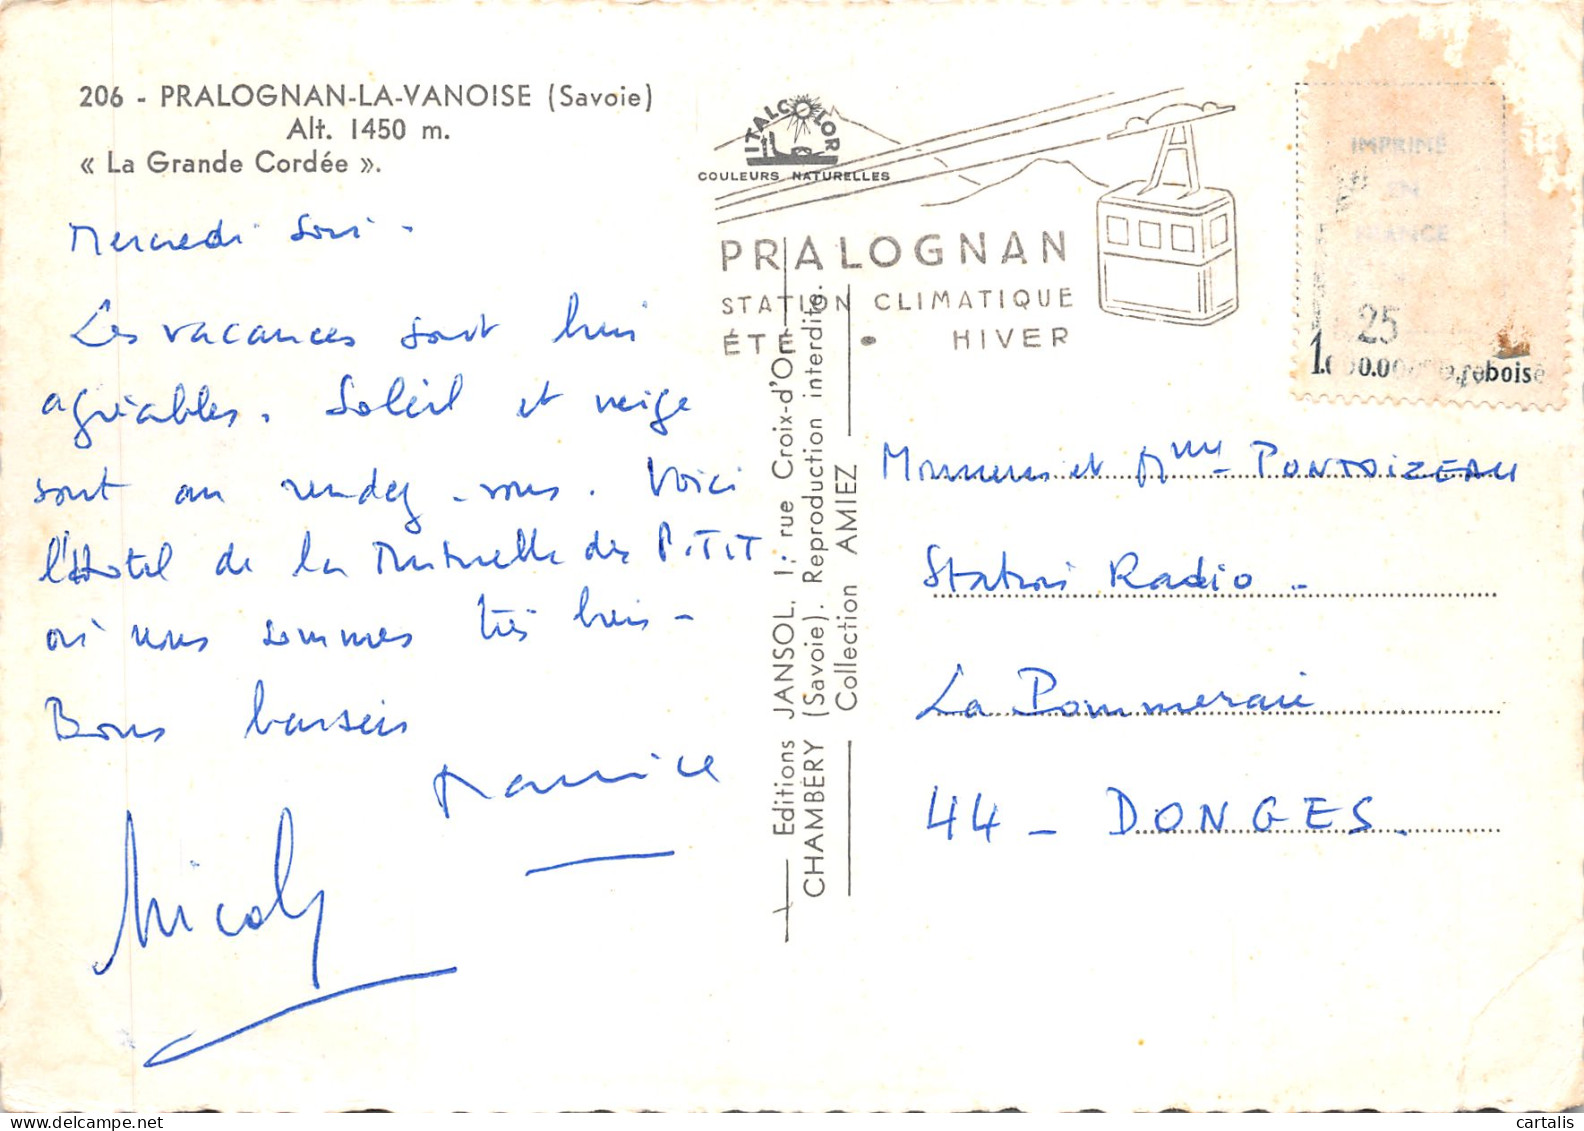 206 - PRALOGNAN-LA-VANOISE (Savoie)
Alt. 1450 m.
« La Grande Cordée ».
Mercredi soir -
Les vacances sont bien
agréables. Soleil et neige
sont au rendez-vous. Voici
l'Hotel de la Mutuelle des P.T.T
où nous sommes très bien -
Bons baisers
Maurice
Nicoly
ITALCOLOR
COULEURS NATURELLES
PRALOGNAN
STATION CLIMATIQUE
ÉTÉ • HIVER
Editions JANSOL, 1, rue Croix-d'Or
CHAMBÉRY (Savoie). Reproduction interdite.
Collection AMIEZ
IMPRIMÉ
EN
FRANCE
25
boisé
Monsieur et Mme PONTOIZEAU
Station Radio -
La Pommeraie
44 - DONGES.
delcampe.net
cartalis